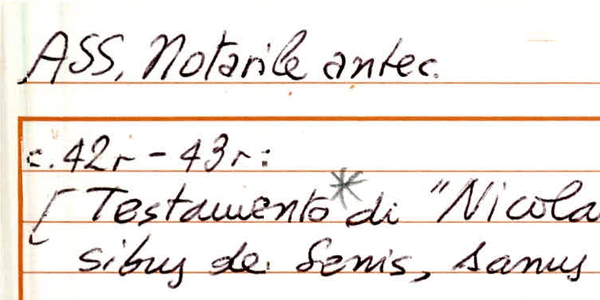 ASS, Notarile antec.
c. 42r - 43r:
[ Testamento* di "Nicola
sibus de Senis, sanus